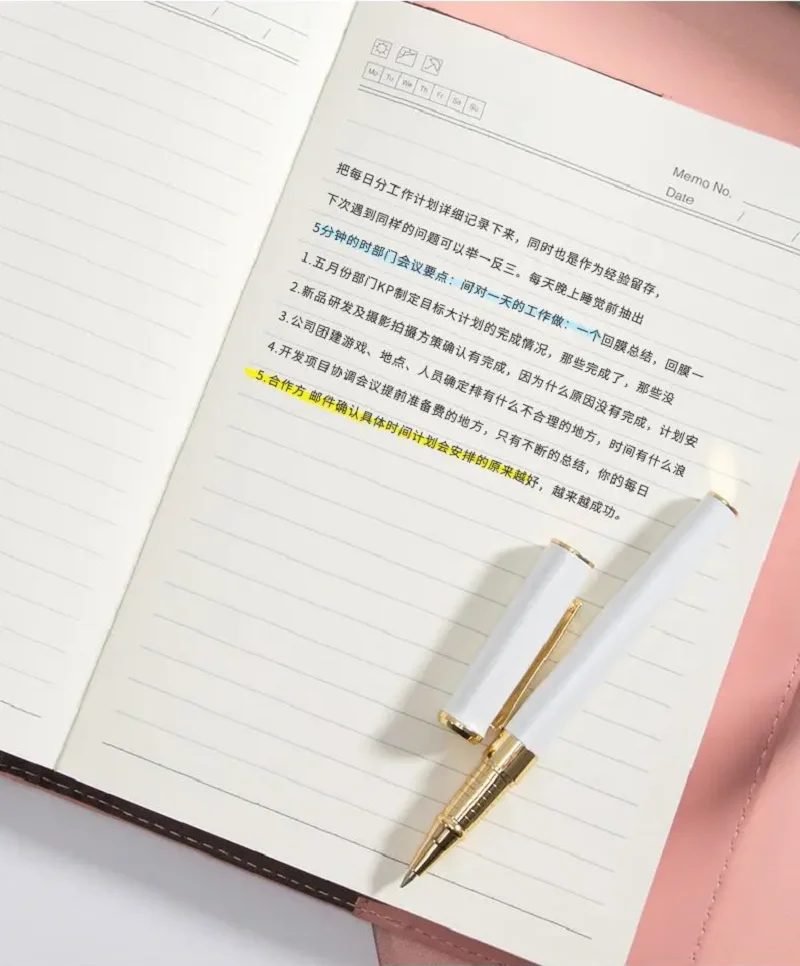 Mo Tu We Th Fr Sa Su
Memo No.
Date / /
把每日分工作计划详细记录下来，同时也是作为经验留存，
下次遇到同样的问题可以举一反三。每天晚上睡觉前抽出
5分钟的时部门会议要点：间对一天的工作做：一个回膜总结，回膜一
1.五月份部门KP制定目标大计划的完成情况，那些完成了，那些没
2.新品研发及摄影拍摄方策确认有完成，因为什么原因没有完成，计划安
3.公司团建游戏、地点、人员确定排有什么不合理的地方，时间有什么浪
4.开发项目协调会议提前准备费的地方，只有不断的总结，你的每日
5.合作方 邮件确认具体时间计划会安排的原来越好，越来越成功。